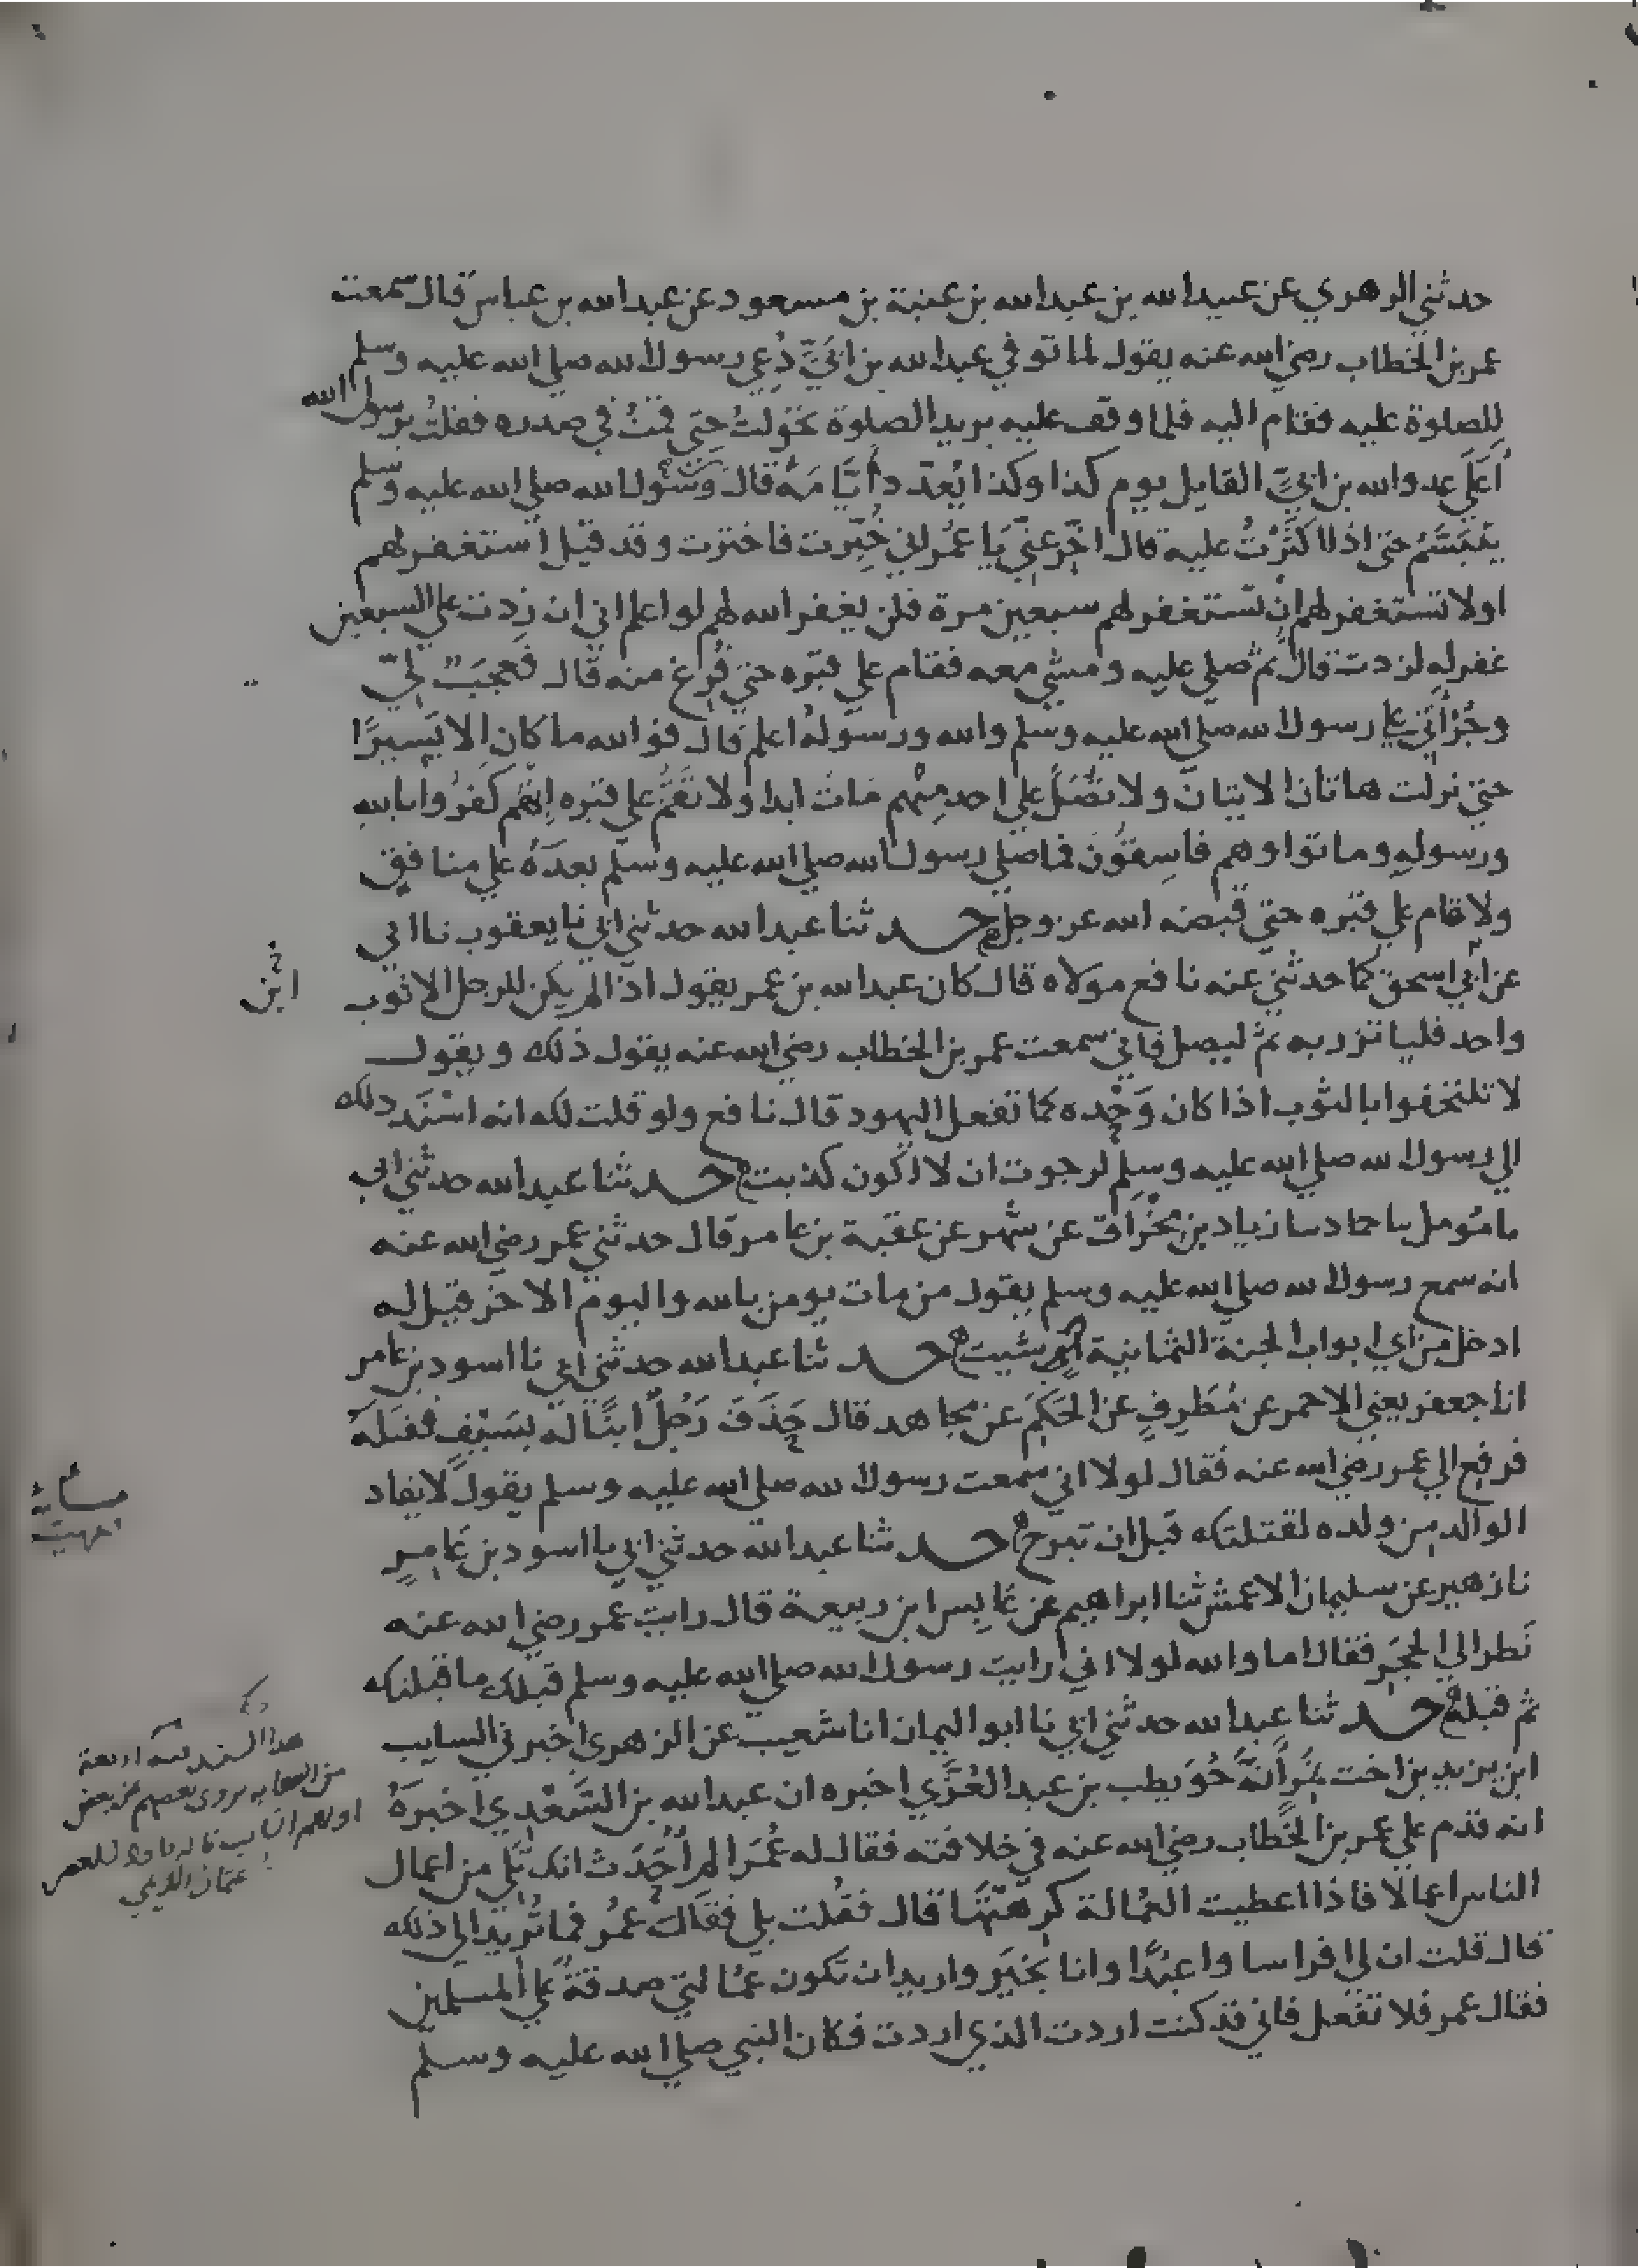 حدثني الزهري عن عبيد الله بن عبد الله بن عتبة بن مسعود عن عبد الله بن عباس قال سمعت
عمر بن الخطاب رضي الله عنه يقول لما توفي عبد الله بن ابيّ دُعي رسول الله صلي الله عليه وسلم
للصلوة عليه فقام اليه فلما وقف عليه يريد الصلوة تحوّلتُ حتي قمتُ في صدره فقلتُ يرسول الله
أَعَلَي عدو الله بن ابيّ القايل يوم كذا وكذا يُعدّد أيّامَهُ قال ورسول الله صلي الله عليه وسلم
يتبسّمُ حتي اذا اكثرْتُ عليه قال اخّر عنّي يا عمُر اني خُيّرت فاخترت وقد قيل استغفر لهم
او لا تستغفر لهم ان تستغفر لهم سبعين مرة فلن يغفر الله لهم لو اعلم اني ان زدت علي السبعين
غفر له لزدت قال ثم صلي عليه ومشي معه فقام علي قبره حتي فُرِغ منه قال فعجبٌ لي
وجُرْأَتي علي رسول الله صلي الله عليه وسلم والله ورسولهُ اعلم قال فو الله ما كان الا يَسيرًا
حتي نزلت هاتان الايتان ولا تُصَلِّ علي احد مِنْهم مات ابدا ولا تَقُمْ علي قبره اِنّهم كفرُوا بالله
ورسولهِ وماتوا وهم فاسِقُون فما صلي رسول الله صلي الله عليه وسلّم بعدَهُ علي منافق
ولا قام علي قبره حتي قبضه الله عز وجل حدثنا عبد الله حدثني ابي نا يعقوب نا ابي
عن ابي اسحق كما حدثني عنه نافع مولاه قال كان عبد الله بن عمر يقول اذا لم يكن للرجل الا ثوب
ابْن
واحد فليا تزر به ثم ليصل فاني سمعت عمر بن الخطاب رضي الله عنه يقول ذلك ويقول
لا تلتحفوا بالثوب اذا كان وَحْده كما تفعل اليهود قال نافع ولو قلت لك انه اسْنَد ذلك
الي رسول الله صلي الله عليه وسلم لرجوت ان لا اكون كذبت حدثنا عبد الله حدثني ابي
نا مُومل نا حماد نا زياد بن مِخْراق عن شهر عن عقبة بن عامر قال حدثني عمر رضي الله عنه
انه سمع رسول الله صلي الله عليه وسلم يقول من مات يومن بالله واليوم الاخر قيل له
ادخل من اي ابواب الجنة الثمانية شيت حدثنا عبد الله حدثني ابي نا اسود بن عامر
انا جعفر يعني الاحمر عن مُطَرِفٍ عن الحَكَم عن مجاهد قال حَذَفَ رَجُلٌ ابنًا له بسَيْفٍ فقتلهُ
فرفع الي عمر رضي الله عنه فقال لولا اني سمعت رسول الله صلي الله عليه وسلم يقول لا يقاد
الوالد من ولده لقتلتك قبل ان تبرح حدثنا عبد الله حدثني ابي نا اسود بن عامرٍ
نا زهير عن سليمان الاعمش ثنا ابراهيم عن عَابِس ابن ربيعة قال رايت عمر رضي الله عنه
نَظر الي الحجَر فقال اما والله لولا اني رايت رسول الله صلي الله عليه وسلم قبلك ما قبلتك
ثم قبلهُ حدثنا عبد الله حدثني ابي نا ابو اليمان انا شعيب عن الزهري اخبرني السايب
ابن يزيد بن اخت نمر أنّهُ حُوَيطب بن عبد العُزَّي اخبره ان عبد الله بن السَّعْدي اخبرهُ
انه قدم علي عمر بن الخطاب رضي الله عنه في خلافته فقال له عُمَر الم اُحَدَّث انك تَلي من اعمال
الناس اعمالًا فاذا اعطيت العُمالة كرِهْتَها قال فقُلت بلي فقال عمُر فما تُريد الي ذلك
قال قلت ان لي افراسا واعبُدًا وانا بخيرٍ واريد ان تكون عمُالتي صدقةً علي المسلمين
فقال عمر فلا تفعل فاني قد كنت اردت الذي اردت فكان النبي صلي الله عليه وسلم
هذا السند فيه اربعة
من الصحابه يروى بعضهم عن بعض
عثمان الديمي